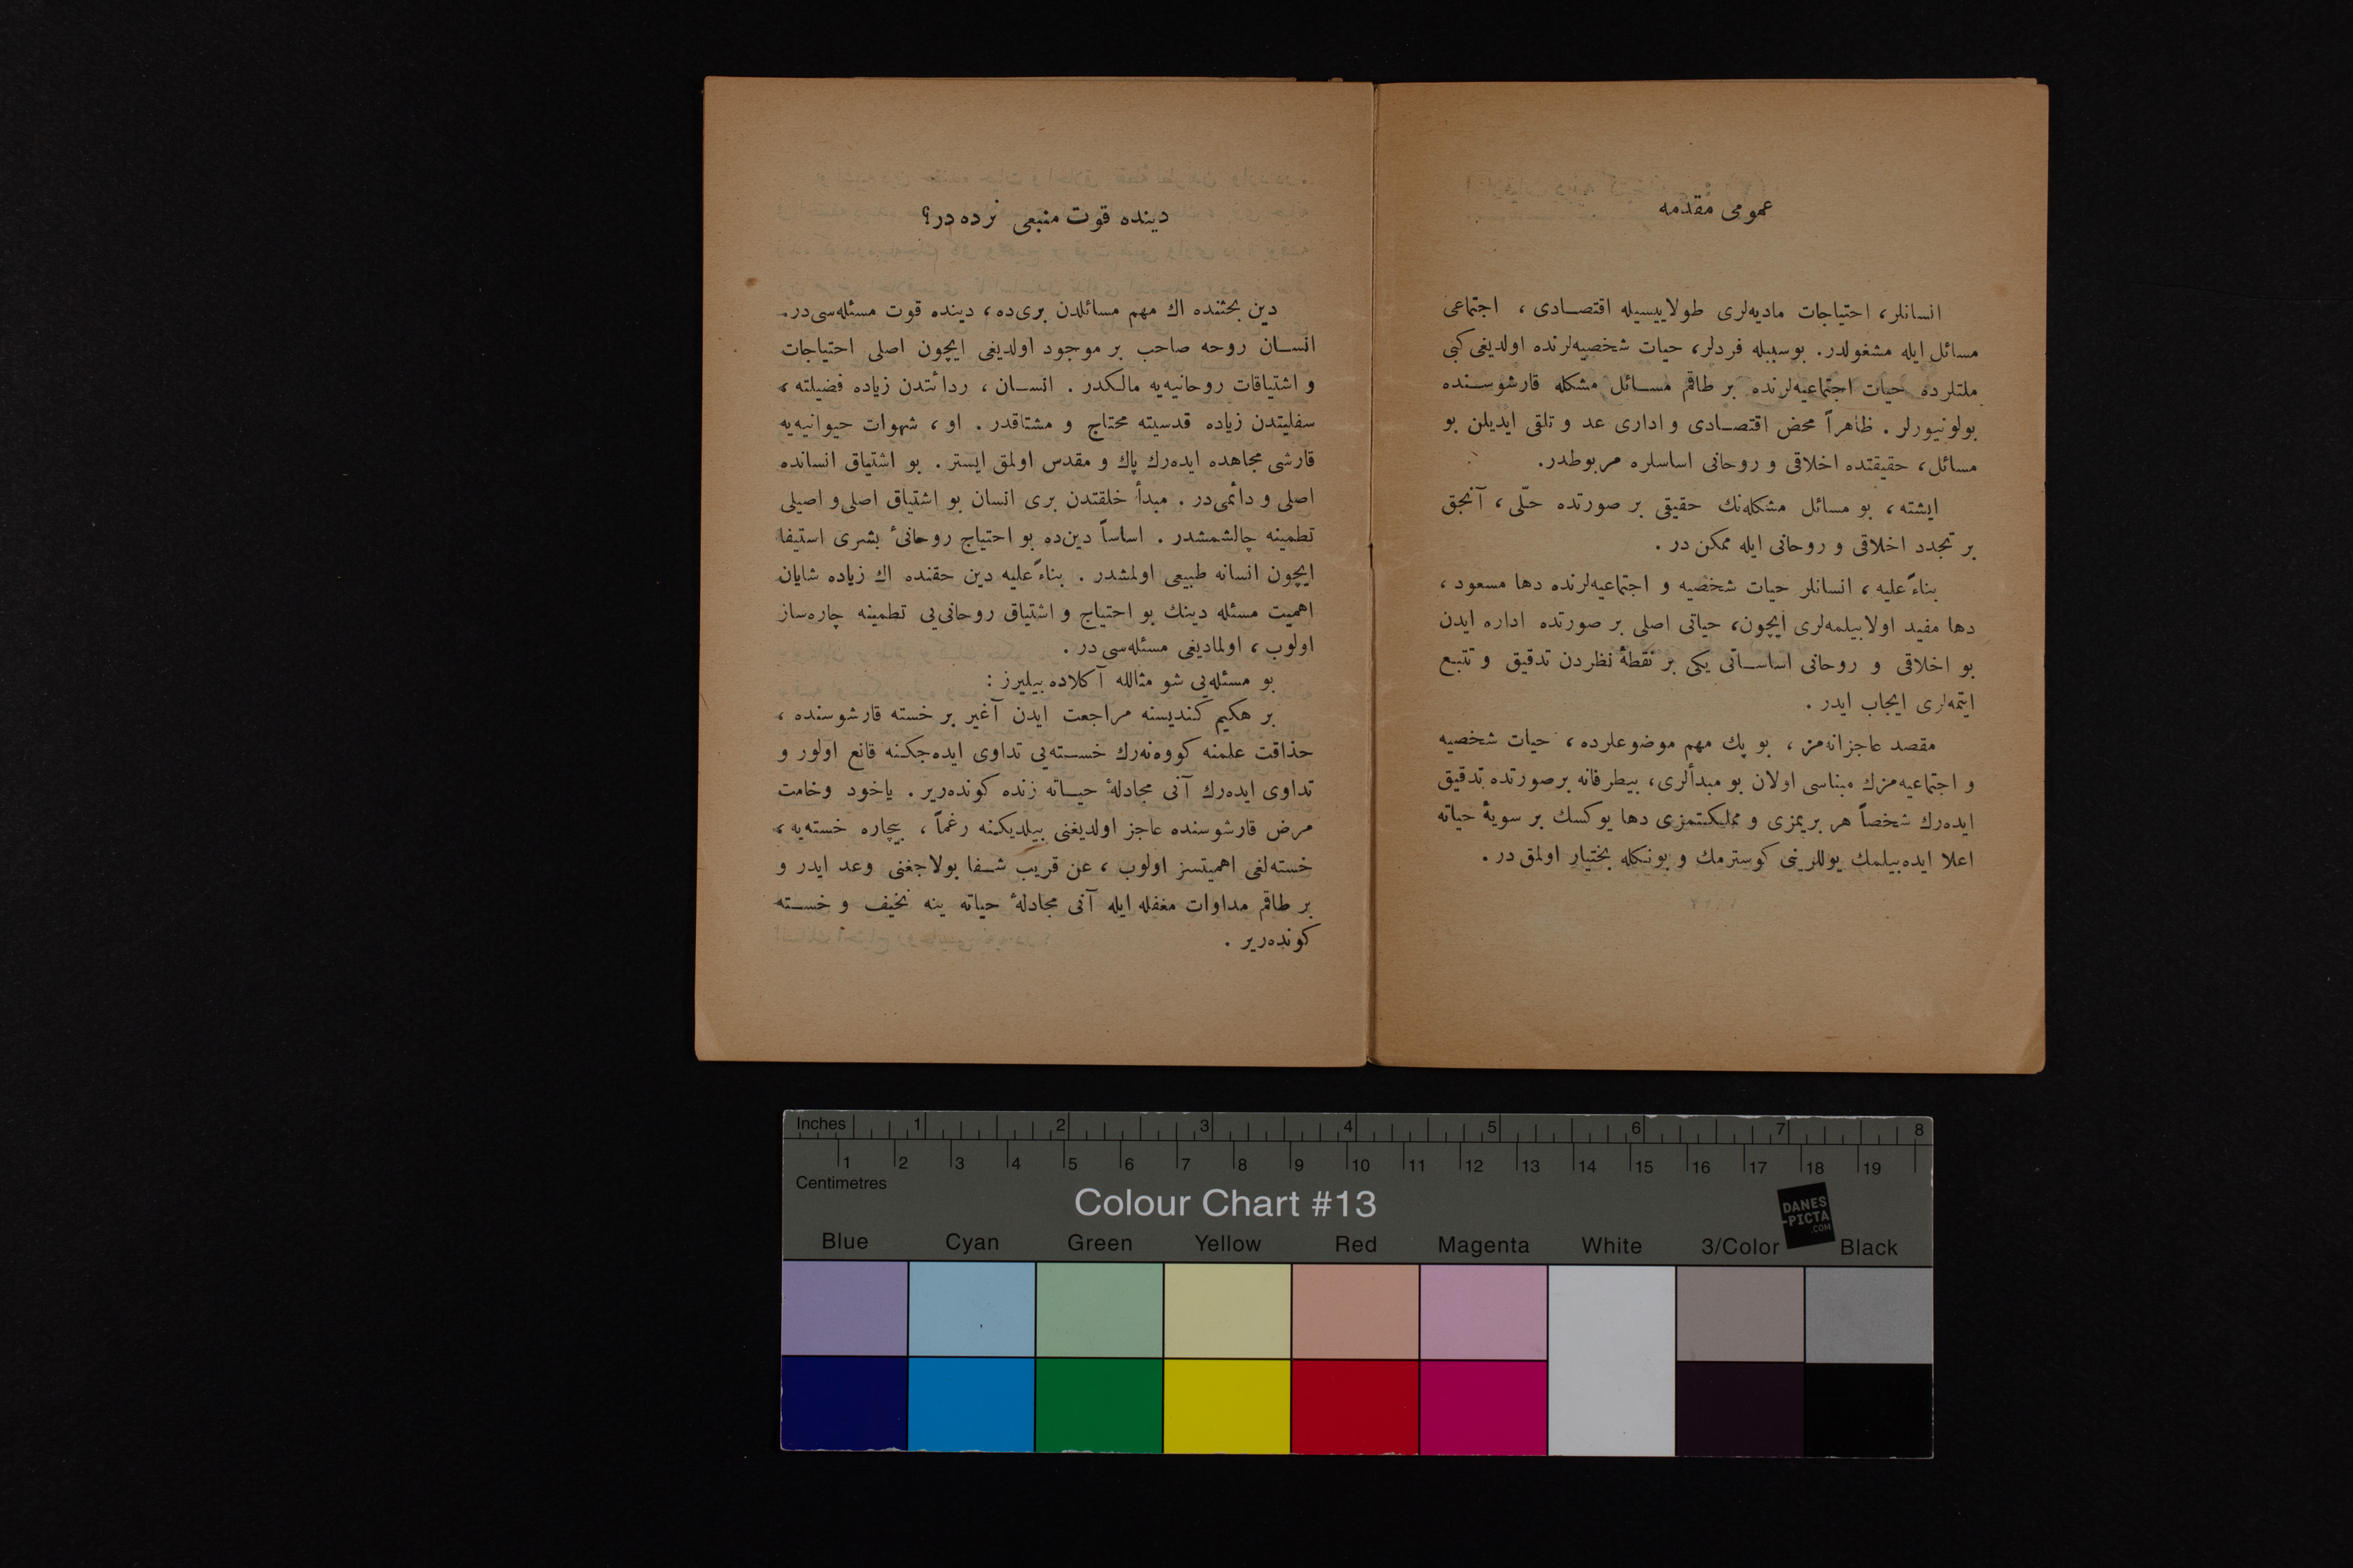 عمومی مقدمه
انسانلر، احتیاجات مادیه‌لری طولاییسیله اقتصادی ، اجتماعی
مسائل ایله مشغولدر. بوسببله فردلر، حیات شخصیه‌لرنده اولدیغی کبی
ملتلرده حیات اجتماعیه‌لرنده بر طاقم مسائل مشکله قارشوسنده
بولونیورلر . ظاهراً محض اقتصادی و اداری عد و تلقی ایدیلن بو
مسائل، حقیقتده اخلاقی و روحانی اساسلره مربوطدر.
ایشته ، بو مسائل مشکله‌نك حقیقی بر صورتده حلّی ، آنجق
بر تجدد اخلاقی و روحانی ایله ممکن در .
بناءً علیه ، انسانلر حیات شخصیه و اجتماعیه‌لرنده دها مسعود ،
دها مفید اولابیلمه‌لری ایچون، حیاتی اصلی بر صورتده اداره ایدن
بو اخلاقی و روحانی اساساتی یکی بر نقطهٔ نظردن تدقیق و تتبع
ایتمه‌لری ایجاب ایدر .
مقصد عاجزانه‌مز ، بو پك مهم موضوعلرده ، حیات شخصیه
و اجتماعیه‌مزك مبناسی اولان بو مبدألری، بیطرفانه برصورتده تدقیق
ایده‌رك شخصاً هر بریمزی و مملکتمزی دها یوکسك بر سویهٔ حیاته
اعلا ایده‌بیلمك یوللرینی کوسترمك و بونکله بختیار اولمق در .
دینده قوت منبعی نرده در؟
دین بحثنده اك مهم مسائلدن بری‌ده ، دینده قوت مسئله‌سی‌در.
انسان روحه صاحب بر موجود اولدیغی ایچون اصلی احتیاجات
و اشتیاقات روحانیه‌یه مالکدر . انسان ، ردائتدن زیاده فضیلته ،
سفلیتدن زیاده قدسیته محتاج و مشتاقدر . او ، شهوات حیوانیه‌یه
قارشی مجاهده ایده‌رك پاك و مقدس اولمق ایستر . بو اشتیاق انسانده
اصلی و دائمی‌در . مبدأ خلقتدن بری انسان بو اشتیاق اصلی و اصیلی
تطمینه چالشمشدر . اساساً دین‌ده بو احتیاج روحانیٔ بشری استیفا
ایچون انسانه طبیعی اولمشدر . بناءً علیه دین حقنده اك زیاده شایان
اهمیت مسئله دینك بو احتیاج و اشتیاق روحانی‌یی تطمینه چاره‌ساز
اولوب ، اولمادیغی مسئله‌سی در .
بو مسئله‌یی شو مثالله آکلاده بیلیرز :
بر هکیم کندیسنه مراجعت ایدن آغیر بر خسته قارشوسنده ،
حذاقت علمنه کووه‌نه‌رك خسته‌یی تداوی ایده‌جکنه قانع اولور و
تداوی ایده‌رك آنی مجادلهٔ حیاته زنده کونده‌ریر . یاخود وخامت
مرض قارشوسنده عاجز اولدیغنی بیلدیکنه رغماً ، بیچاره خسته‌یه ،
خسته‌لغی اهمیتسز اولوب ، عن قریب شفا بولاجغنی وعد ایدر و
بر طاقم مداوات مغفله ایله آنی مجادلهٔ حیاته ینه نحیف و خسته
کونده‌ریر .
Inches 1 2 3 4 5 6 7 8
1 2 3 4 5 6 7 8 9 10 11 12 13 14 15 16 17 18 19
Centimetres
Colour Chart #13
DANES
-PICTA
.COM
Blue Cyan Green Yellow Red Magenta White 3/Color Black